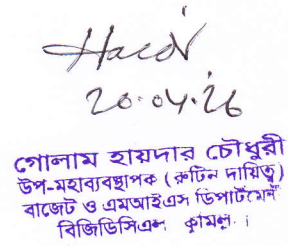 20.04.26
গোলাম হায়দার চৌধুরী
উপ-মহাব্যবস্থাপক (রুটিন দায়িত্ব)
বাজেট ও এমআইএস ডিপার্টমেন্ট
বিজিডিসিএল